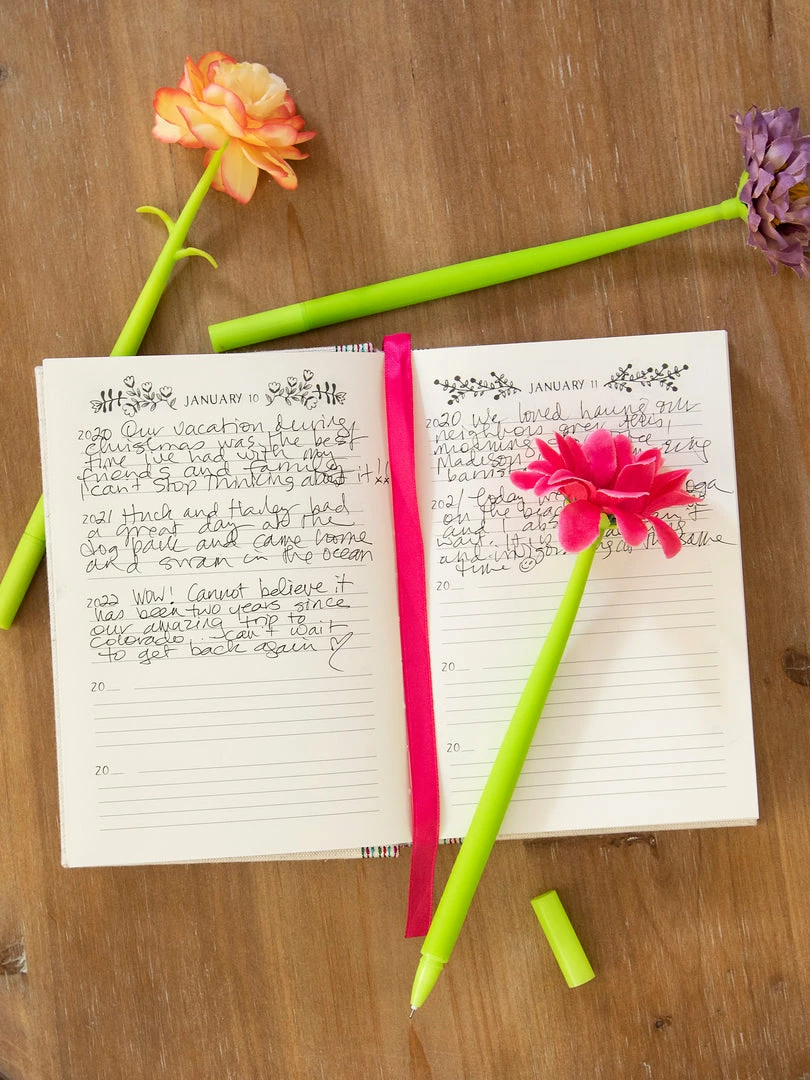 JANUARY 10
2020 Our vacation during
Christmas was the best
time we had with my
friends and family
I can't stop thinking about it!!
2021 Huck and Hailey had
a great day at the
dog park and came home
and swam in the ocean
2022 WOW! Cannot believe it
has been two years since
our amazing trip to
Colorado.. Can't wait
to get back again
20
20
JANUARY 11
2020 We loved having our
neighbors over this
morning
Madison
2021 Today
on the
and I
wait. It is
and the same
time
20
20
20